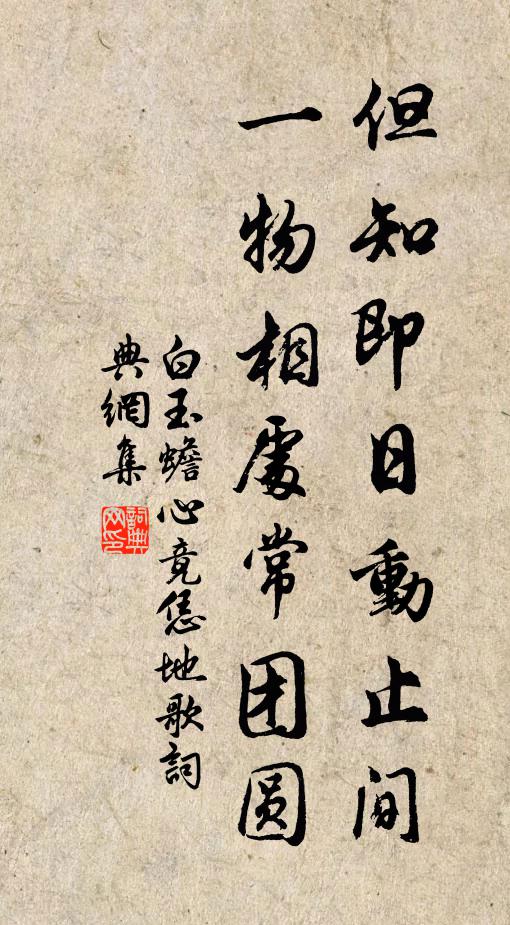 但知即日動止间
一物相處常团圆
白玉蟾心竟恁地歌詞
典網集
詞典网印